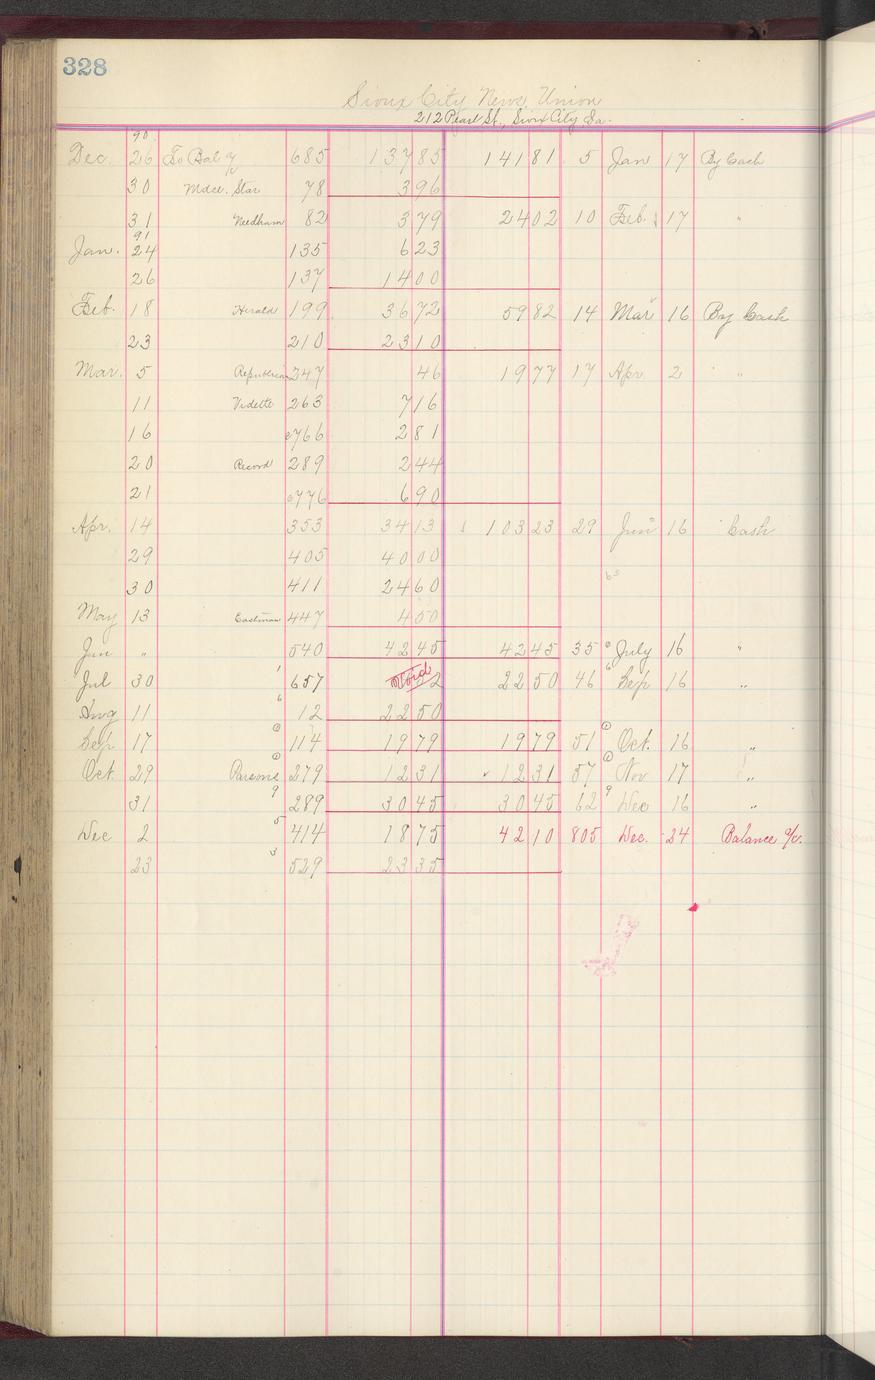 328
Sioux City News Union
212 Pearl St., Sioux City, Ia.
90
Dec. 26 To Bal 685 137 85 141 81 5 Jan 17 By Cash
30 Mdse. Star 78 3 96
31 Needham 82 3 79 24 02 10 Feb. 17 "
91
Jan. 24 135 6 23
26 137 14 00
Feb. 18 Herald 199 36 72 59 82 14 Mar 16 By Cash
23 210 23 10
Mar. 5 Republican 247 46 19 77 17 Apr 2 "
11 Vidette 263 7 16
16 766 2 81
20 Record 289 2 44
21 776 6 90
Apr. 14 353 34 13 103 23 29 Jun 16 Cash
29 405 40 00
30 411 24 60
May 13 Eastman 447 4 50
Jun " 540 42 45 42 45 35 July 16 "
Jul 30 1 657 Void 2 22 50 46 6 Sep 16 "
Aug 11 6 12 22 50
Sep 17 114 19 79 19 79 51 Oct. 16 "
Oct. 29 Parsons 279 12 31 12 31 57 Nov 17 "
31 9 289 30 45 30 45 62 9 Dec 16 "
Dec 2 5 414 18 75 42 10 805 Dec. 24 Balance a/c.
23 3 529 23 35